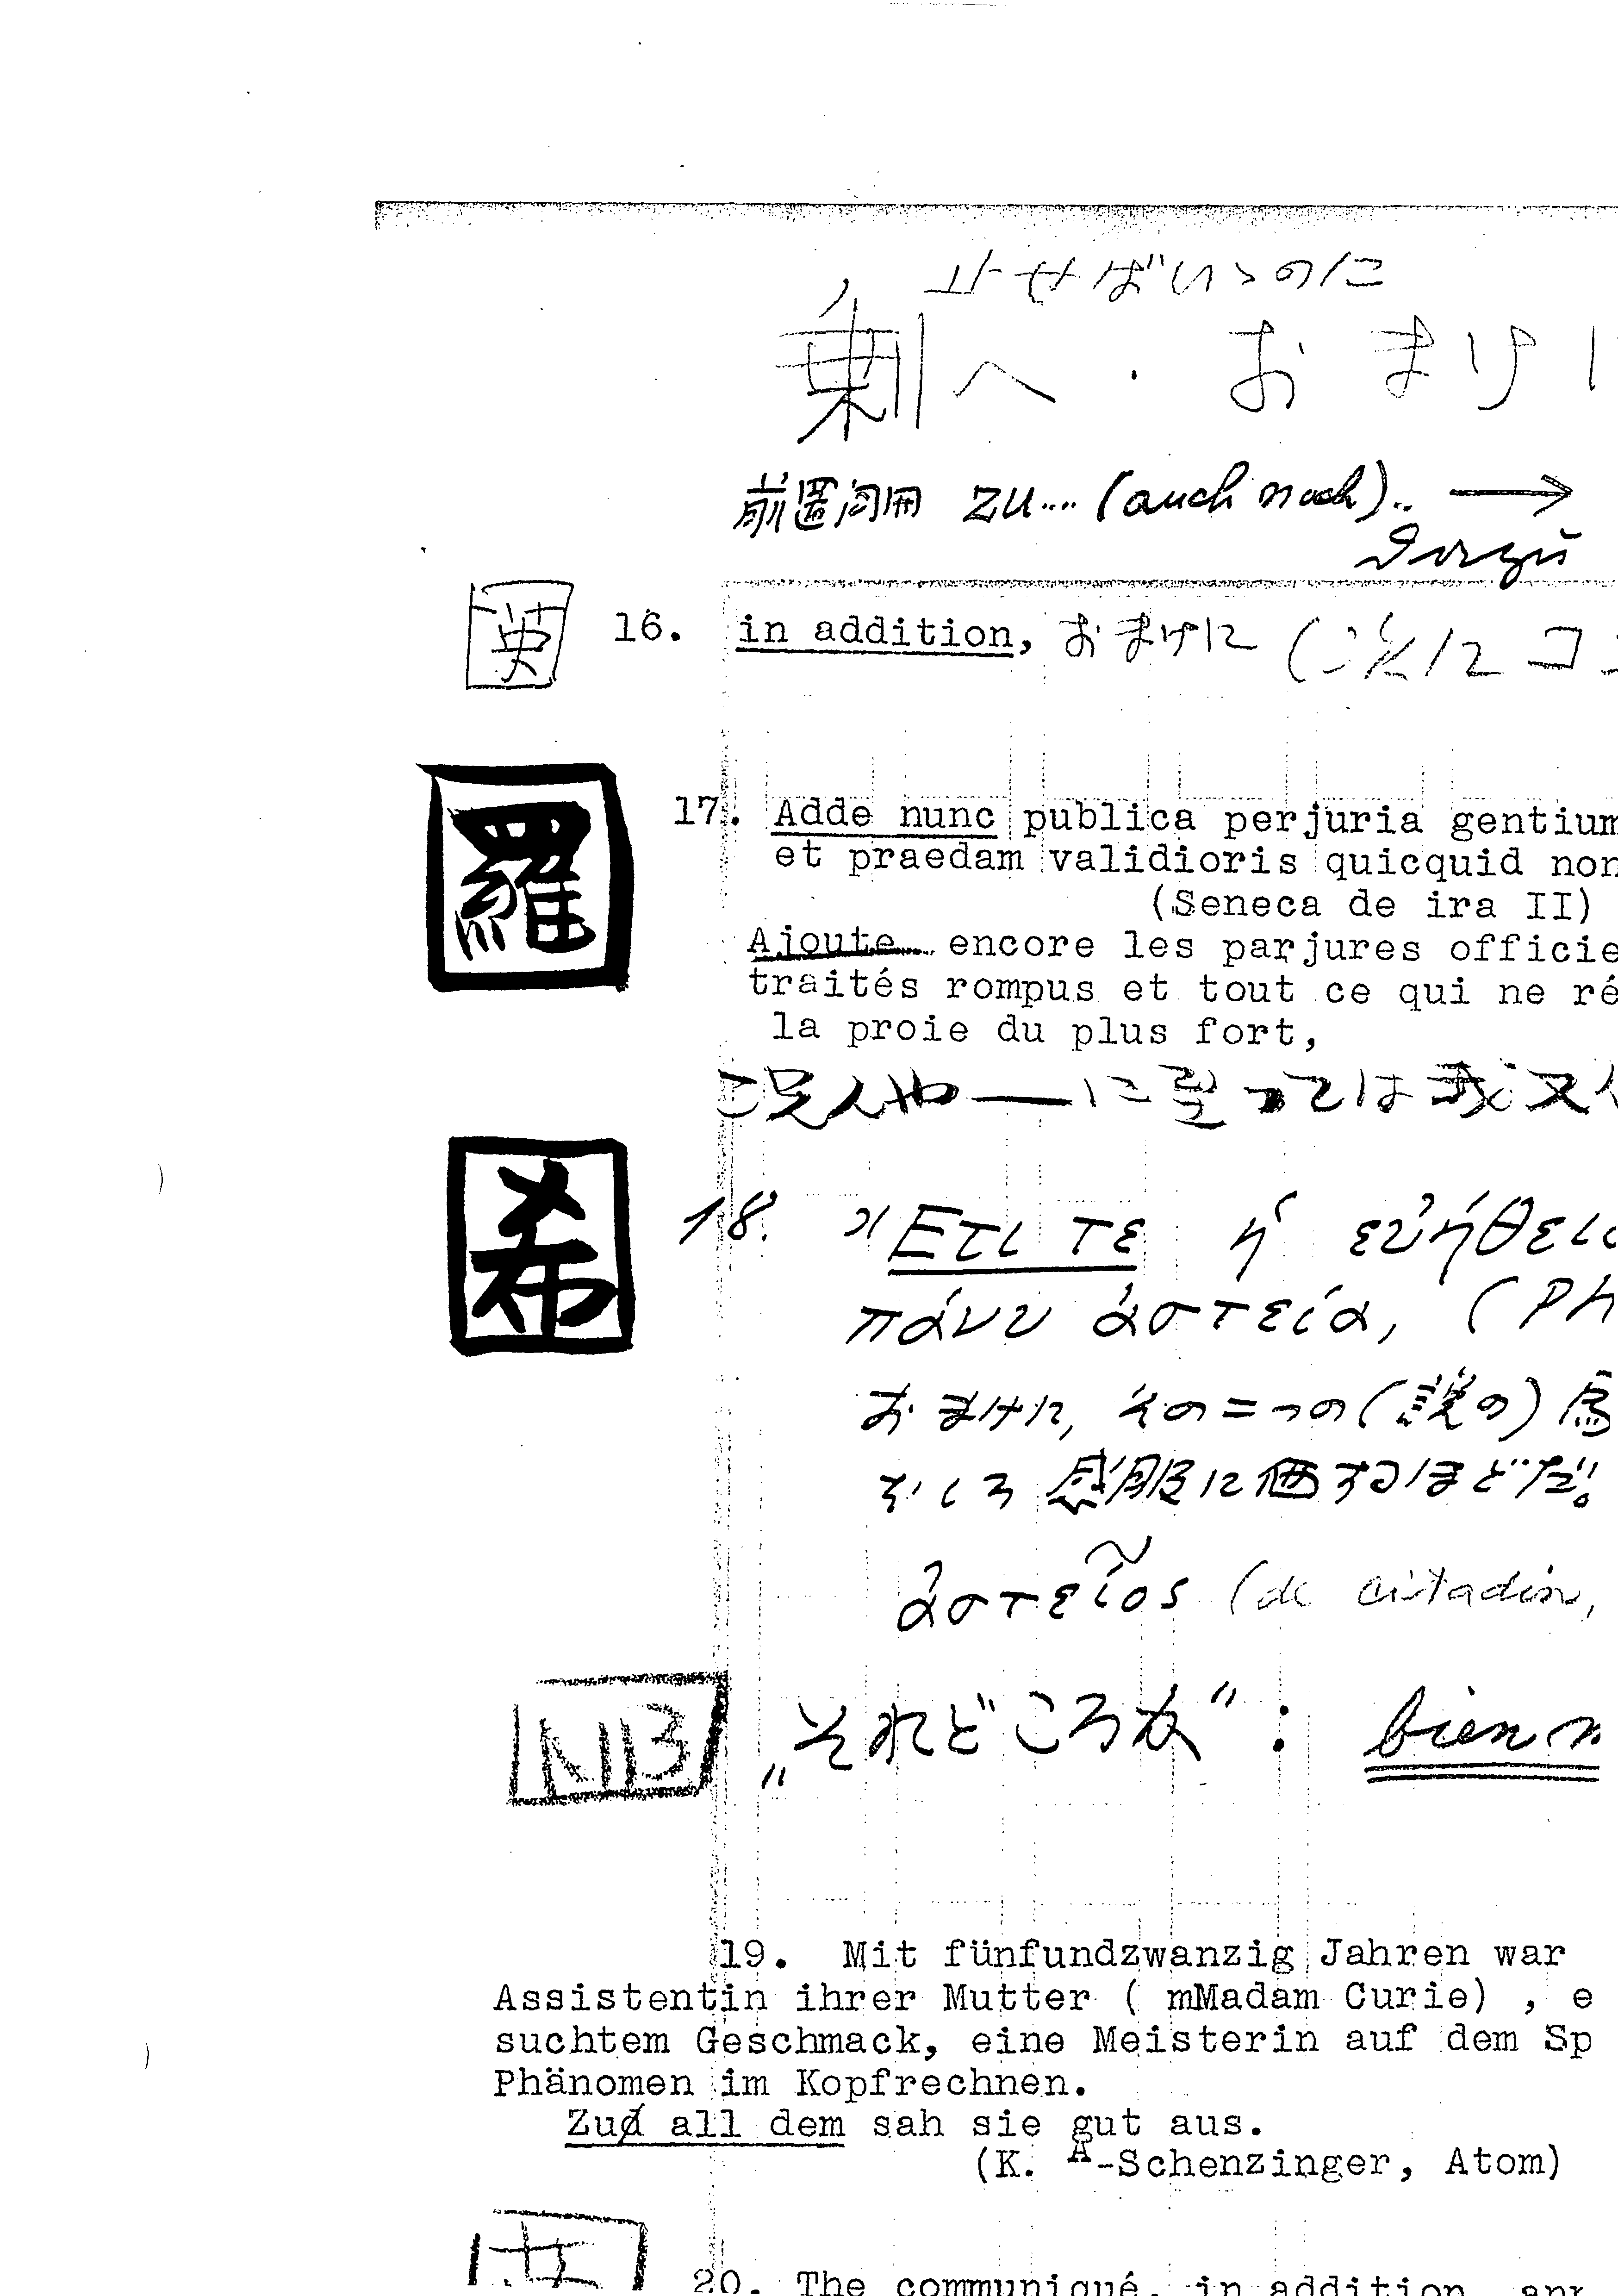 止せばいゝのに
剰へ・おまけに
前置詞用 zu....(auch noch).. →
dazu
英 16. in addition, おまけに (
羅 17. Adde nunc publica perjuria gentium
et praedam validioris quicquid non
(Seneca de ira II)
Ajoute encore les parjures officie
traités rompus et tout ce qui ne ré
la proie du plus fort,
に至っては
希 18. Ἔτι τε ἡ εὐήθεια
πάνυ ἀστεία, (Ph
おまけに, その二つの(
むしろ感服に値するほどだ。
ἀστεῖος (de citadin,
NB „それどころか": bien
19. Mit fünfundzwanzig Jahren war
Assistentin ihrer Mutter ( mMadam Curie) , e
suchtem Geschmack, eine Meisterin auf dem Sp
Phänomen im Kopfrechnen.
Zu all dem sah sie gut aus.
(K. A-Schenzinger, Atom)
英 20. The communiqué, in addition